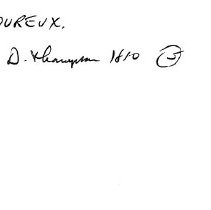 OUREUX.
D. Thompson 1810 ②